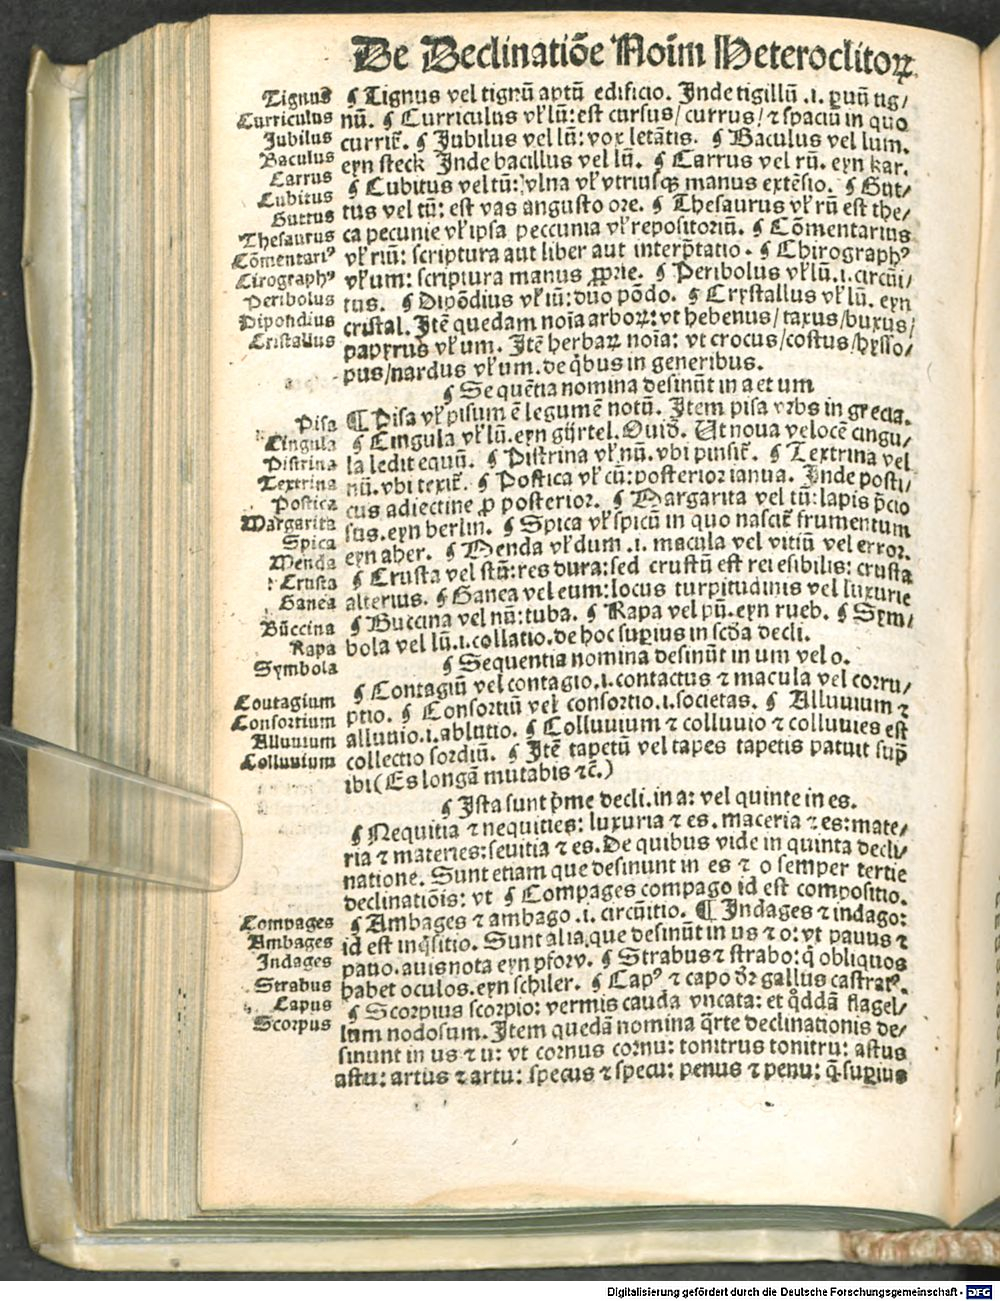 De Declinatiōe Noīm Heteroclitoꝝ
Tignus
Curriculus
Jubilus
Baculus
Carrus
Cubitus
Guttus
Thesaurus
Cōmentariꝰ
Cirographꝰ
Peribolus
Dipondius
Cristallus
¶ Tignus vel tignū aptū edificio. Inde tigillū .i. ꝑuū tig/
nū. ¶ Curriculus vł lū: est cursus/ currus/ ⁊ spaciū in quo
currit᷑. ¶ Jubilus vel lū: vox letātis. ¶ Baculus vel lum.
eyn steck Inde bacillus vel lū. ¶ Carrus vel rū. eyn kar.
¶ Cubitus vel tū: vlna vł vtriusqꝫ manus extēsio. ¶ Gut/
tus vel tū: est vas angusto ore. ¶ Thesaurus vł rū est the/
ca pecunie vł ipsa peccunia vł repositoriū. ¶ Cōmentarius
vł riū: scriptura aut liber aut interp̄tatio. ¶ Chirographꝰ
vł um: scriptura manus ꝓprie. ¶ Peribolus vł lū .i. circūi/
tus. ¶ Dipōdius vł iū: duo pōdo. ¶ Crystallus vł lū. eyn
cristal. Itē quedam noīa arboꝝ: vt hebenus/ taxus/ buxus/
papyrus vł um. Itē herbaꝝ noīa: vt crocus/ costus/ hysso/
pus/ nardus vł um. de qͥbus in generibus.
¶ Sequētia nomina desinūt in a et um
Pisa
Cingula
Pistrina
Textrina
Postica
Margarita
Spica
Menda
Crusta
Ganea
Buccina
Rapa
Symbola
¶ Pisa vł pisum ē legumē notū. Item pisa vrbs in grecia.
¶ Cingula vł lū. eyn gürtel. Ouid̄. Ut noua velocē cingu/
la ledit equū. ¶ Pistrina vł nū. vbi pinsit᷑. ¶ Textrina vel
nū. vbi texit᷑. ¶ Postica vł cū: posterior ianua. Inde posti/
cus adiectine ꝓ posterior. ¶ Margarita vel tū: lapis p̄cio
sus. eyn berlin. ¶ Spica vł spicū in quo nascit᷑ frumentum
eyn aher. ¶ Menda vł dum .i. macula vel vitiū vel error.
¶ Crusta vel stū: res dura: sed crustū est rei esibilis: crusta
alterius. ¶ Ganea vel eum: locus turpitudinis vel luxurie
¶ Buccina vel nū: tuba. ¶ Rapa vel pū. eyn rueb. ¶ Sym/
bola vel lū .i. collatio. de hoc suꝑius in scd̄a decli.
¶ Sequentia nomina desinūt in um vel o.
Contagium
Consortium
Alluuium
Colluuium
¶ Contagiū vel contagio .i. contactus ⁊ macula vel corru/
ptio. ¶ Consortiū vel consortio .i. societas. ¶ Alluuium ⁊
alluuio .i. ablutio. ¶ Colluuium ⁊ colluuio ⁊ colluuies est
collectio sordiū. ¶ Itē tapetū vel tapes tapetis patuit sup̄
ibi (Es longā mutabis ⁊c̄.)
¶ Ista sunt p̄me decli. in a: vel quinte in es.
¶ Nequitia ⁊ nequities: luxuria ⁊ es. maceria ⁊ es: mate/
ria ⁊ materies: seuitia ⁊ es. De quibus vide in quinta decli/
natione. Sunt etiam que desinunt in es ⁊ o semper tertie
declinatiōis: vt ¶ Compages compago id est compositio.
Compages
Ambages
Indages
Strabus
Capus
Scorpus
¶ Ambages ⁊ ambago .i. circūitio. ¶ Indages ⁊ indago:
id est inqͥsitio. Sunt alia que desinūt in us ⁊ o: vt pauus ⁊
pauo. auis nota eyn pfow. ¶ Strabus ⁊ strabo: qͥ obliquos
habet oculos. eyn schiler. ¶ Capꝰ ⁊ capo dr̄ gallus castratꝰ.
¶ Scorpius scorpio: vermis cauda vncata: et qͦddā flagel/
lum nodosum. Item quedā nomina qͣrte declinationis de/
sinunt in us ⁊ u: vt cornus cornu: tonitrus tonitru: astus
astu: artus ⁊ artu: specus ⁊ specu: penus ⁊ penu: q̄ suꝑius
Digitalisierung gefördert durch die Deutsche Forschungsgemeinschaft - DFG